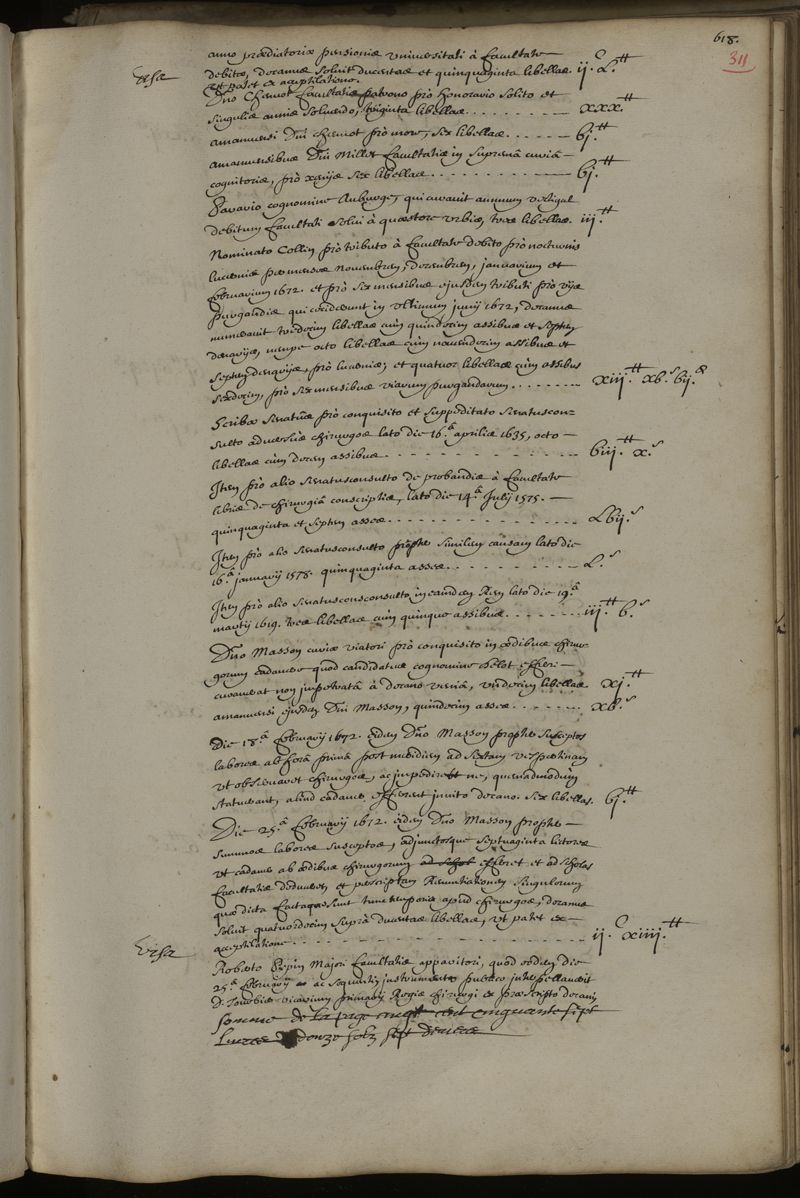 618.
311
anno prædictoria pensionis universitati à Facultate
debitæ, decanus soluit ducentas et quinquaginta libellas. ij.C L.tt
Ersa
ut patet ex acceptilatione.
Dno Chenot Facultatis patrono pro honorario solito et
singulis annis solvendo, triginta libellas. xxx.tt
amanuensi Dni Chenot pro more, sex libellas. bj.tt
amanuensibus Dni Millet Facultatis in suprema curia
cognitoris, pro xenijs sex libellas. bj.tt
qui curavit annuum vectigal
debitum Facultati solvi à quæstore urbis, tres libellas. iij.tt
Nominato Collin pro tributo à Facultate debito pro nocturnis
lucernis per menses novembrem, decembrem, januarium et
februarium 1672. et pro sex mensibus ejusdem tributi pro vijs
purgandis qui ceciderunt in ultimum junij 1672, decanus
numeravit tredecim libellas cum quindecim assibus et septem
denarijs, nempe octo libellas cum novemdecim assibus et
septem denarijs, pro lucernis; et quatuor libellas cum assibus
sexdecim, pro sex mensibus viarum purgandarum. xiij.tt xb.s bij.d
Scribæ senatus pro conquisito et suppeditato senatuscon=
sulto adversus chirurgos lato die 16.a aprilis 1635, octo
libellas cum decem assibus. biij.tt x.s
Item pro alio senatusconsulto de probandis à Facultate
libris de chirurgia conscriptis, lato die 14.a Julij 1575.
quinquaginta et septem asses. Lbij.s
Item pro alio senatusconsulto propter similem causam lato die
16.a januarij 1578. quinquaginta asses. L.s
Item pro alio senatusconsconsulto in eamdem rem lato die 19.a
martij 1619. tres libellas cum quinque assibus. iij.tt b.s
Dno Masson curiæ viatori pro conquisito in ædibus chirur
gorum cadavere quod candidatus cognomine efferri
curaverat non impetrata à decano venia, undecim libellas xj.tt
amanuensi ejusdem Dni Masson, quindecim asses. xb.s
Die 18.a februarij 1672. eidem Dno Masson propter susceptos
labores ab hora prima post meridiem ad sextam vespertinam
ut observaret chirurgos, ac impediret ne, quemadmodum
statuerant, aliud cadaver efferrent invito decano. sex libellas. bj.tt
Die 25.a februarij 1672. eidem Dno Masson propter
summos labores susceptos, adjunctosque septuaginta lictores
ut cadaver ab ædibus chirurgorum ad schol efferret et ad scholas
Facultatis deduceret, et perscriptam renuntiationem singulorum
quæ dicta factaque sunt tunc temporis apud chirurgos, decanus
soluit quatuordecim supra ducentas libellas, ut patet ex
Ersa
acceptilatione. ij.C xiiij.tt
Roberto Crepin Majori Facultatis apparitori, quod eodem die
25.a februarij ac sequenti, instrumento publico interpellaverit
D. vicarium primarij Regis chirurgi ex præscripto decani
Somme de la page cinq cent cinquante sept
Livres douze solz sept deniers